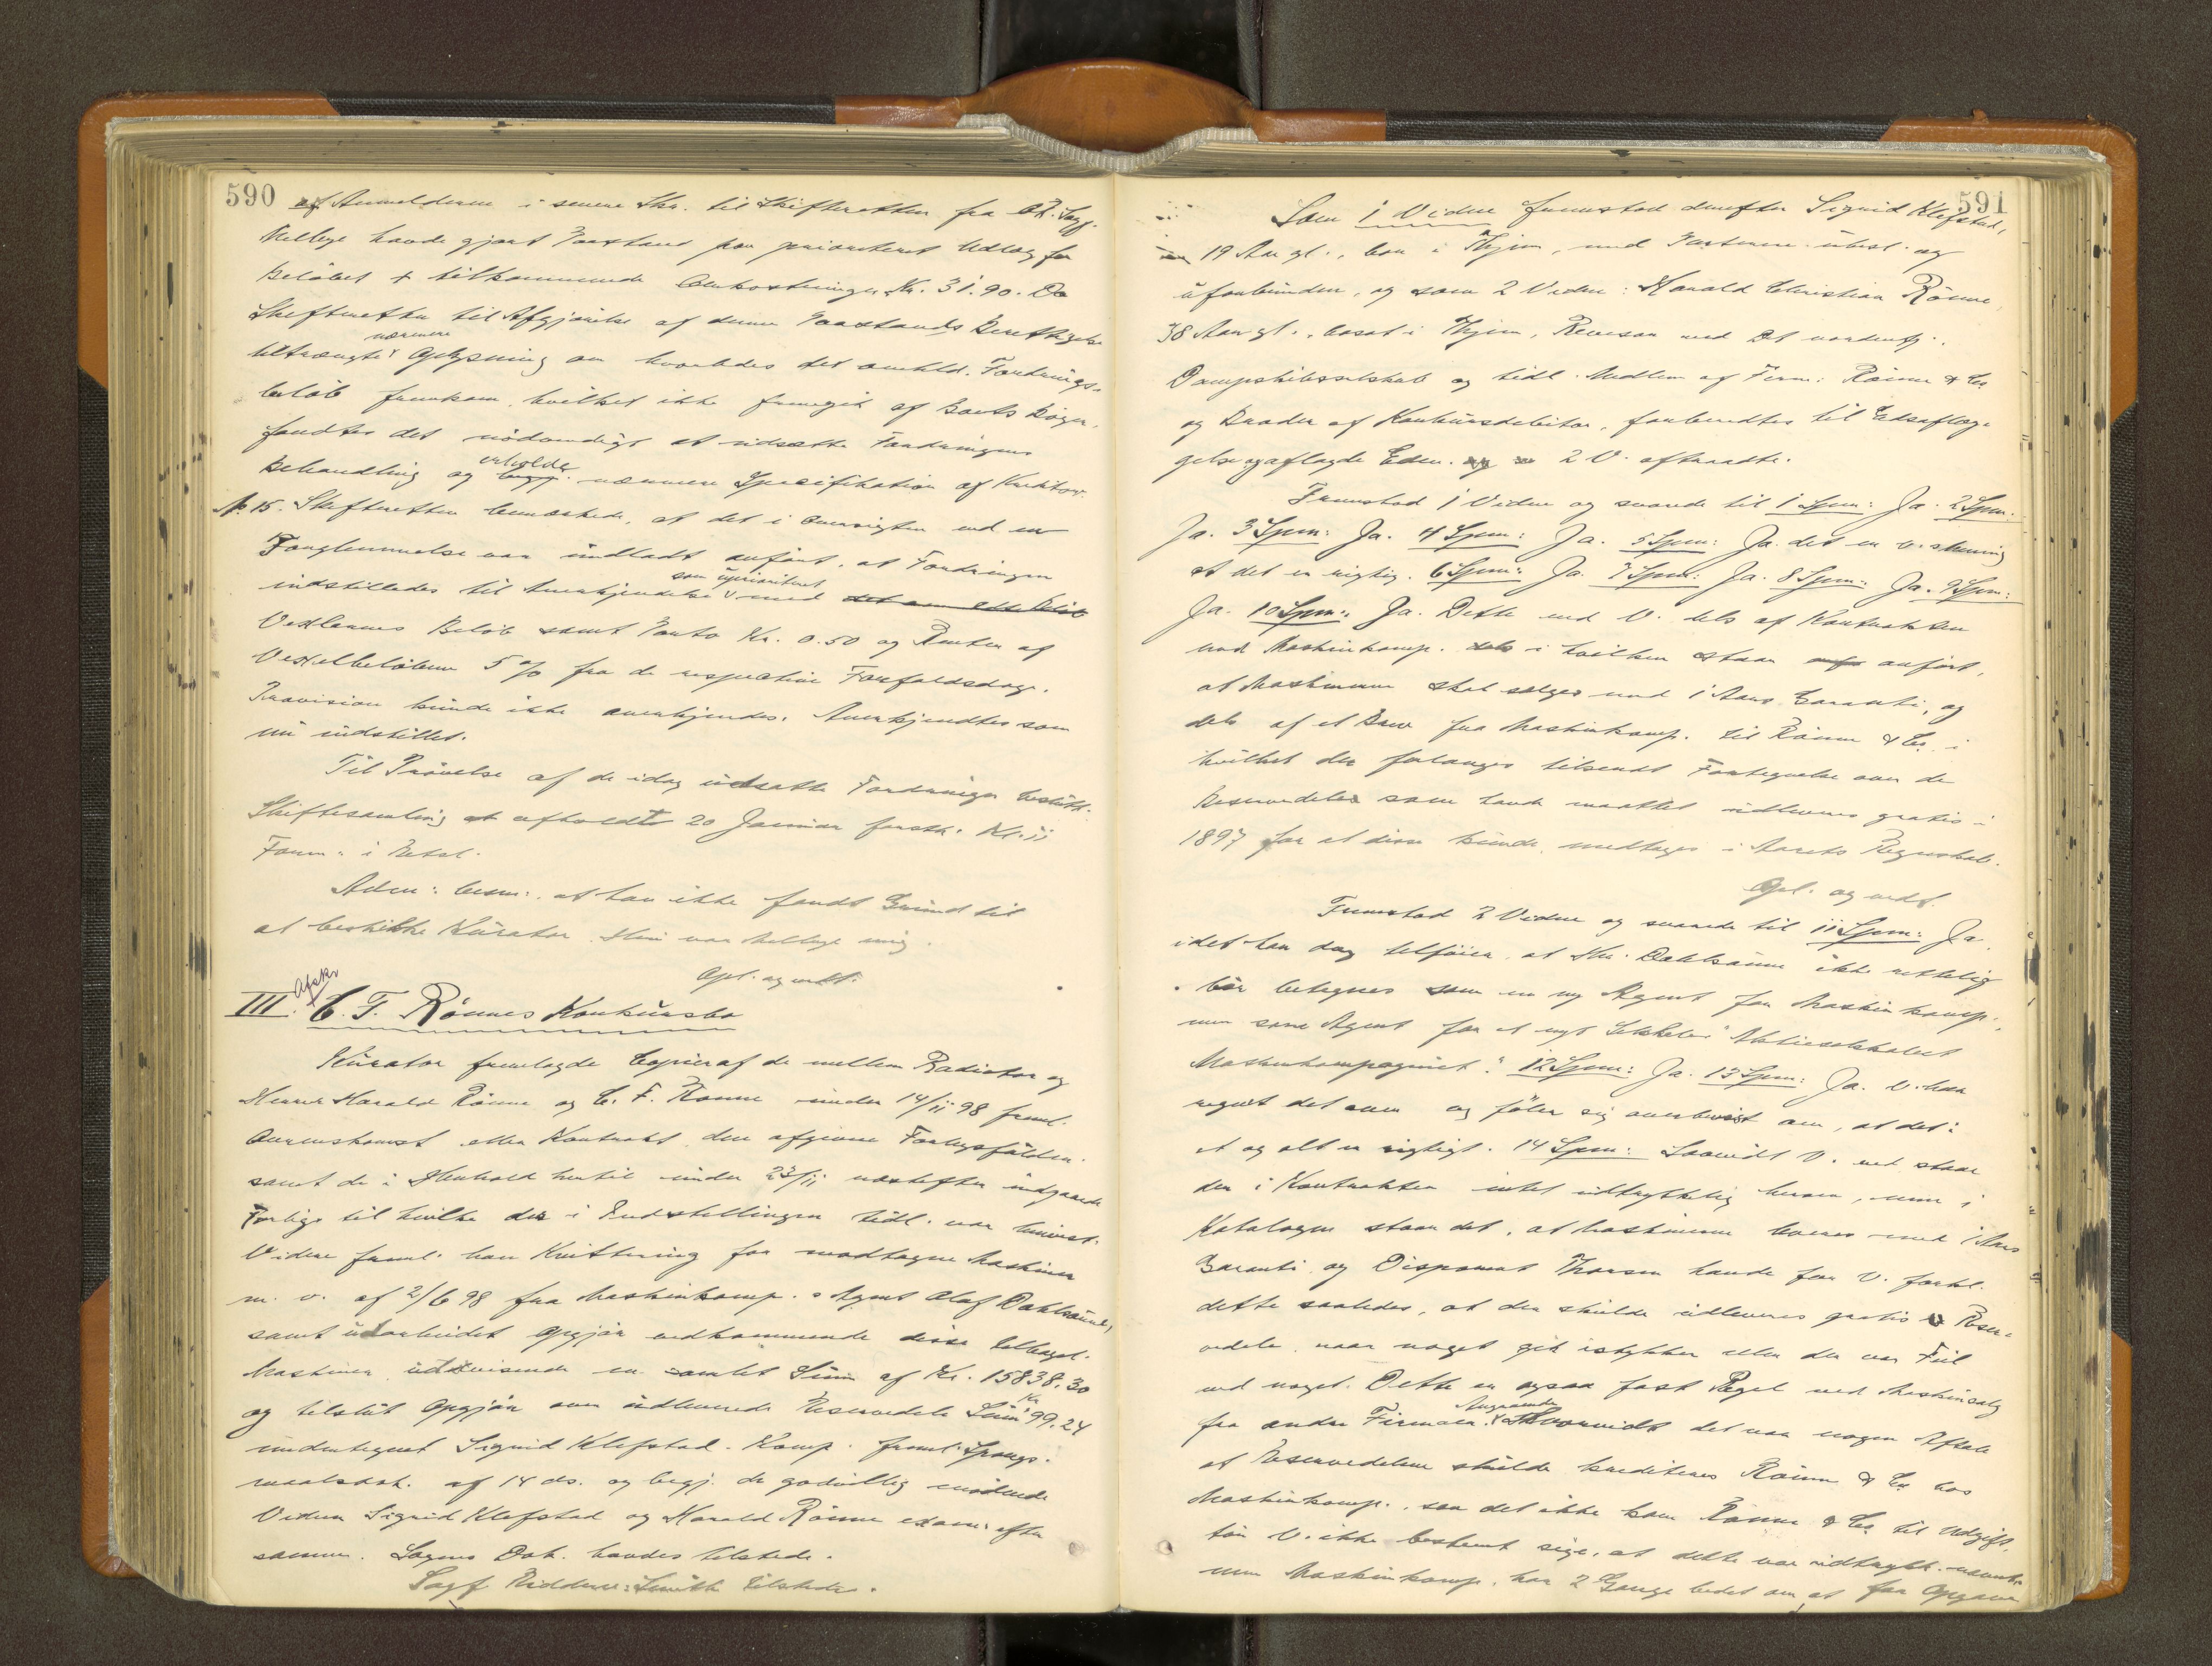 590
af Anmelderen i senere Skr. til Skifteretten fra O.R. Sagf.
Mellbye havde gjort Paastand paa prioriteret Udlæg for
Beløbet + tilkommende Omkostninger Kr. 31.90. Da
Skifteretten til Afgjørelse af denne Paastands Berettigelse
tiltrængte nærmere Oplysning om hvorledes det anmeldte Fordrings-
beløb fremkom, hvilket ikke fremgik af Boets Bøger,
fandtes det nødvendigt at udsætte Fordringens
Behandling og erholde nærmere Specifikation af Kreditor.
No 15. Skifteretten bemærkede, at det i Oversigten ved en
Forglemmelse var undladt anført, at Fordringen
indstilledes til Anerkjendelse som uprioriteret med det am
Vexlernes Beløb samt Porto Kr. 0.50 og Renter af
Vexelbeløbene 5 % fra de respective Forfaldsdage.
Provision kunde ikke anerkjendes. Anerkjendtes som
nu indstillet.
Til Prøvelse af de idag udsatte Fordringer beslutt.
Skiftesamling at afholdt 20 Januar førstk. Kl. 11
Form: i Retsl.
Adm: bem:, at han ikke fandt Grund til
at beskikke Kurator. Heri var Mellbye enig.
Opl. og vedt.
Afskr
III. C. F. Rönnes Konkursbo
Kurator fremlagde Copier af de mellem Radiator og
Herrer Harald Rönne og C. F. Rönne under 14/11 98 freml.
Overenskomst eller Kontrakt, den afgivne
samt de i Henhold hertil under 23/11 næstefter indgaaede
Forlig til hvilke der i Indstillingen tidl. var henvist.
Videre freml. han Kvittering for modtagne Maskiner
m. v. af 2/6 98 fra Maskinkomp.s Agent Olaf Dahlsrud,
samt udarbeidet Opgjør vedkommende disse tilbagel.
Maskiner, udvisende en samlet Sum af Kr. 15838.30
og tilslut Opgjør over udleverede Reservedele Sum Kr 99.24
undertegnet Sigrid Klefstad. Komp. freml. Spørgs-
maalsdok. af 14 ds. og begj. de godvillig mødende
Vidner Sigrid Klefstad og Harald Rönne exam. efter
samme. Sagens Dok. havdes tilstede.
Sagf. Middenes: Smith tilstede.
591
Som 1 Vidne fremstod derefter Sigrid Klefstad,
19 Aar gl., bor i Thjem, med Parterne ubesl. og
uforbunden, og som 2 Vidne: Harald Christian Rönne
38 Aar gl., bosat i Thjem, Revisor ved Det nordenfj.
Dampskibsselskab og tidl. Medlem af Firm: Rönne & Co
og Broder af Konkursdebitor, forberedtes til Edsaflæg-
gelse og aflagde Eden. 2 V. aftraadte.
Fremstod 1 Vidne og svarede til 1 Spm: Ja. 2 Spm:
Ja. 3 Spm: Ja. 4 Spm: Ja. 5 Spm: Ja. det er v. skrevet
at det er rigtig. 6 Spm: Ja. 7 Spm: Ja. 8 Spm: Ja. 9 Spm:
Ja. 10 Spm: Ja. Dette ved V. dels af Kontrakten
med Maskinkomp. i hvilken staar anført,
at Maskinerne skal sælges med 1 Aars Garanti, og
dels af et Brev fra Maskinkomp. til Rönne & Co, i
hvilket der forlanges tilsendt Fortegnelse over de
Reservedele som havde maattet udleveres gratis i
1897 for at disse kunde medtages i Aarets Regnskab.
Opl. og vedt.
Fremstod 2 Vidne og svarede til 11 Spm: Ja,
idet han dog tilføier, at Hr. Dahlsrud ikke rettelig
bør betegnes som en ny Agent for Maskinkomp.,
men som Agent for et nyt Selskab "Aktieselskabet
Maskinkompagniet". 12 Spm: Ja. 13 Spm: Ja. V. har
regnet det over og føler sig overbevist om, at det
et og alt er rigtigt. 14 Spm: Saavidt V. ved staar
der i Kontrakten intet udtrykkelig herom, men i
Katalogen staar det, at Maskinerne leveres med 1 Aars
Garanti, og Disponent Thorsen havde for V. forkl.
dette saaledes, at der skulde udleveres gratis Reser-
vedele, naar noget gik istykker eller der var Feil
ved noget. Dette er ogsaa fast Regel ved Maskinsalg
fra andre Firmaer. Angaaende hvorvidt det var nogen Aftale
at Reservedelene skulde krediteres Rönne & Co hos
Maskinkomp., saa det ikke kom Rönne & Co til Udgift,
tør V. ikke bestemt sige, at dette var udtrykt. nævnt,
men Maskinkomp. har 2 Gange bedt om at faa Opgave